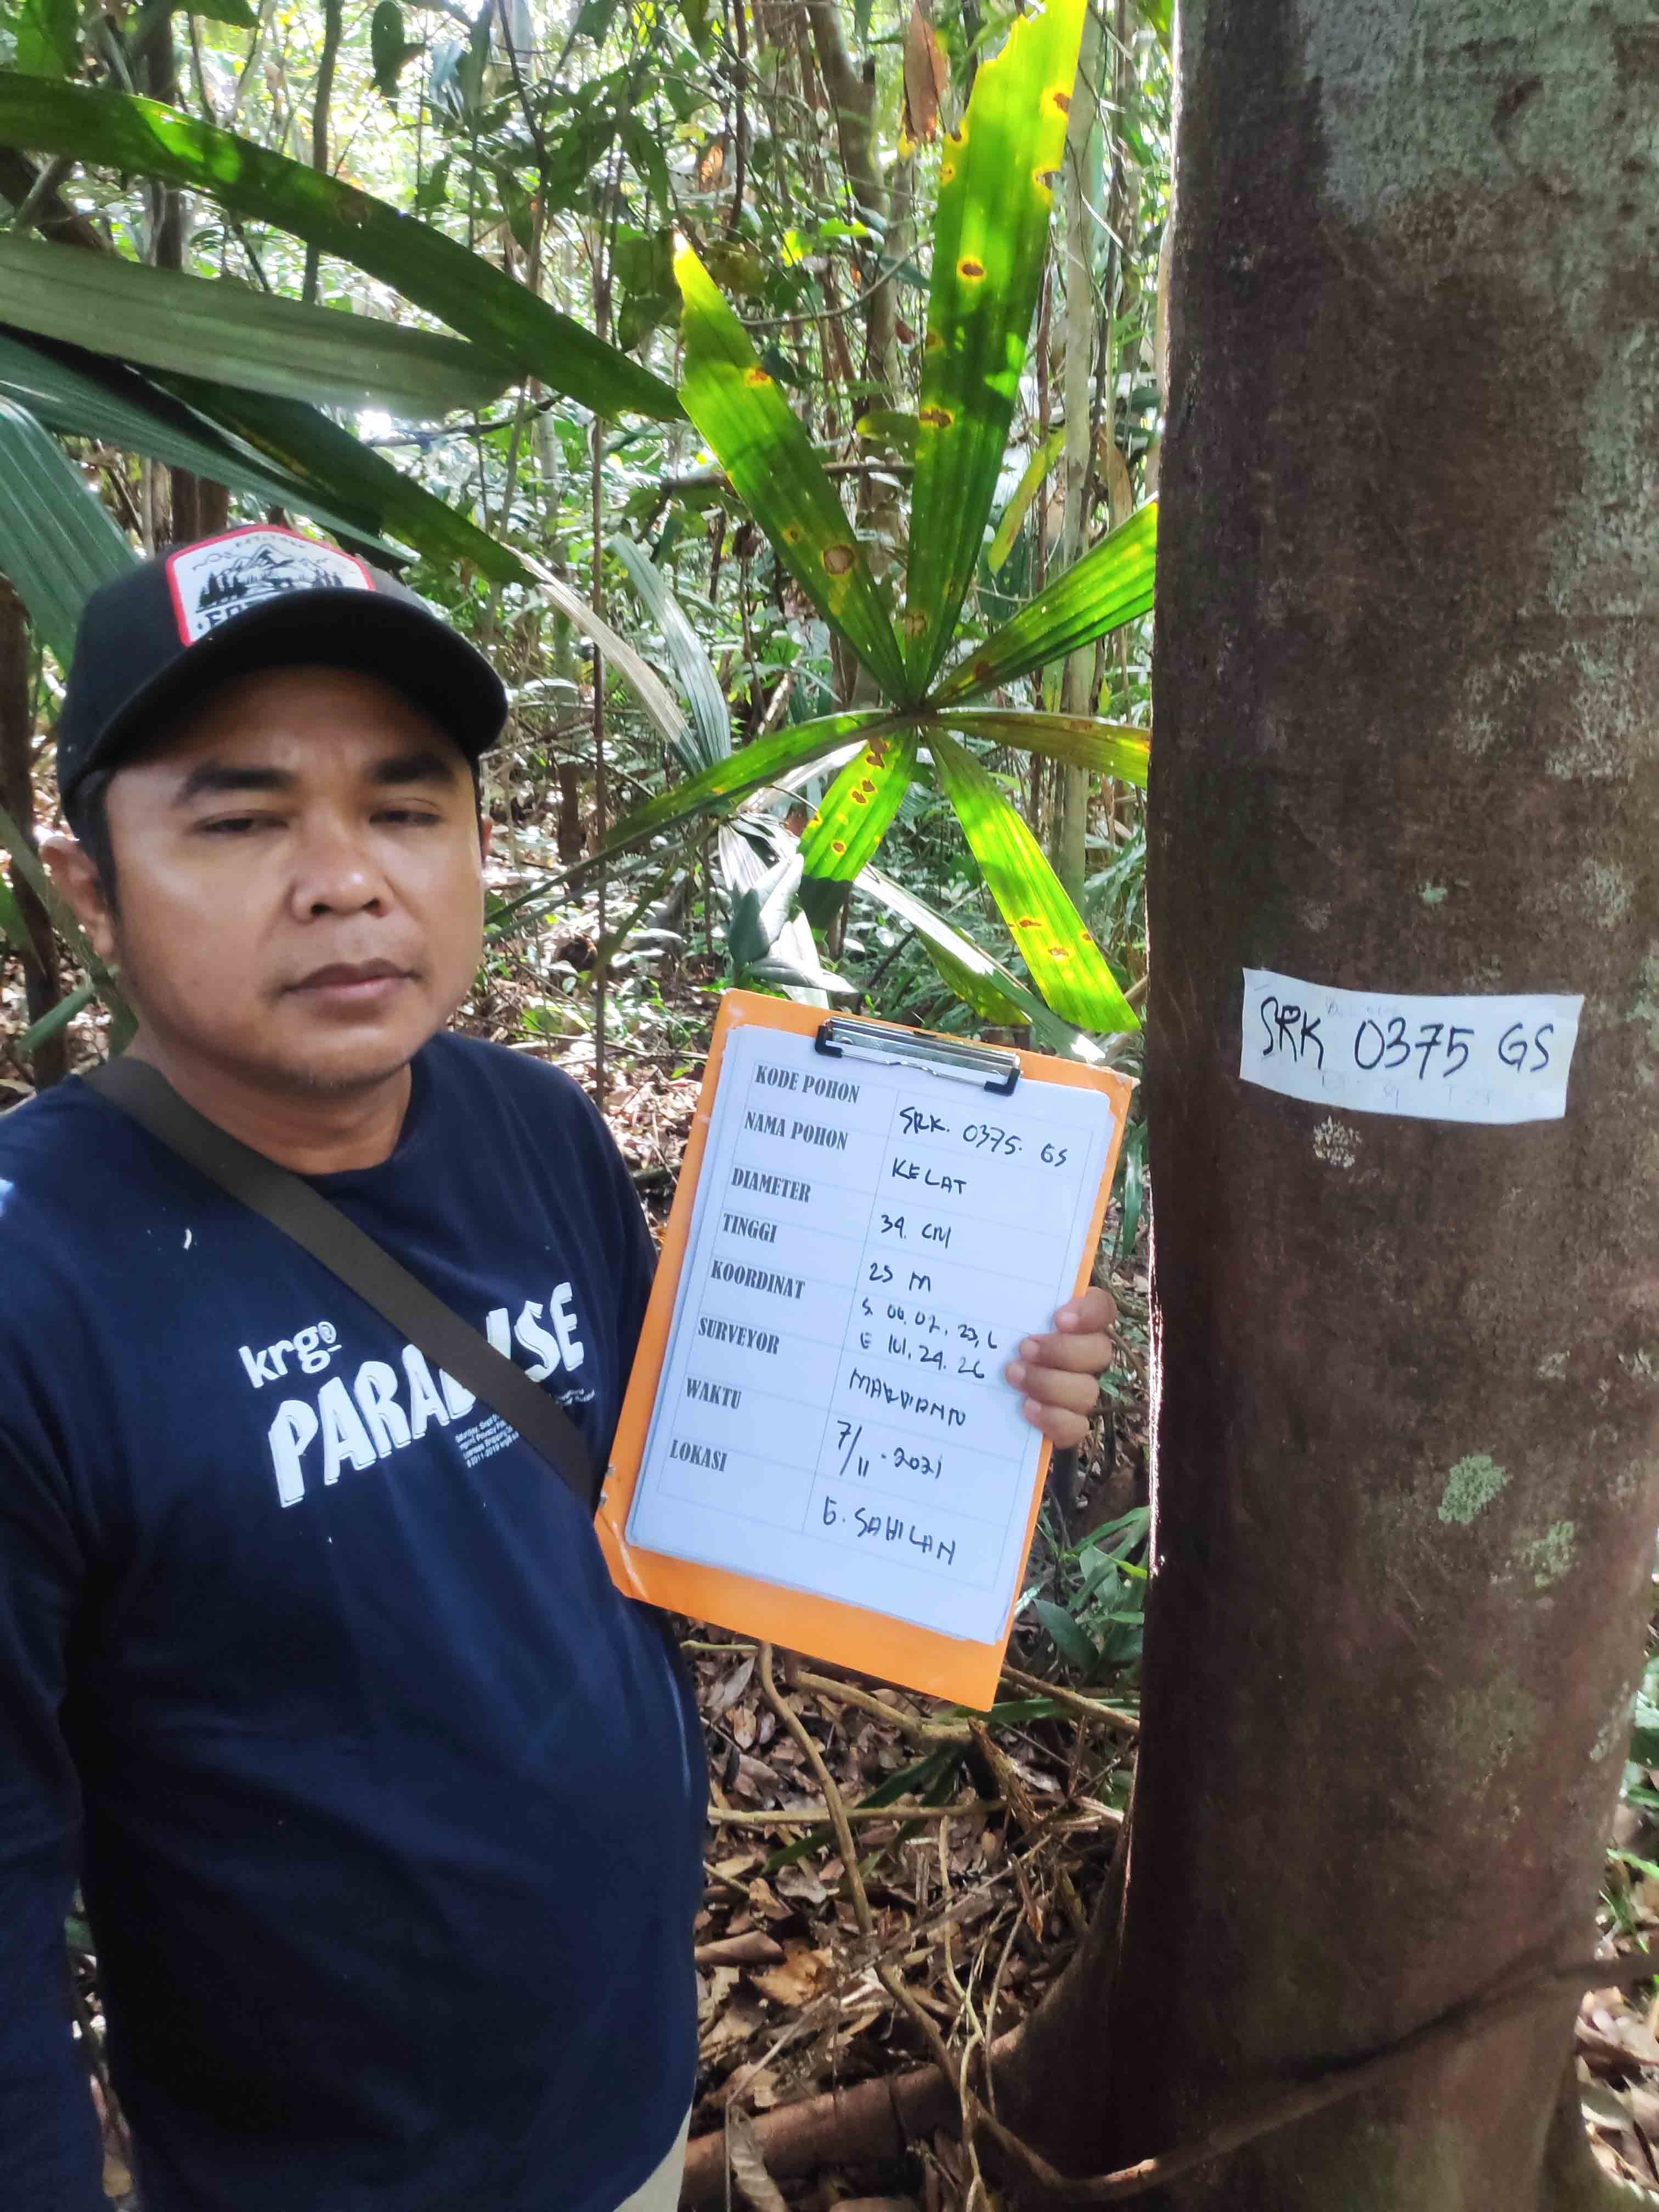 krgo
PARADISE
KODE POHON SRK. 0375. GS
NAMA POHON KELAT
DIAMETER 34. CM
TINGGI 25 M
KOORDINAT S. 00. 07. 23,6
E 101. 24. 26
SURVEYOR MARDIANTO
WAKTU 7/11-2021
LOKASI G. SAHILAN
SRK 0375 GS